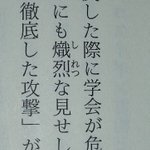 した際に学会が危
にも熾烈な見せし
徹底した攻撃」が